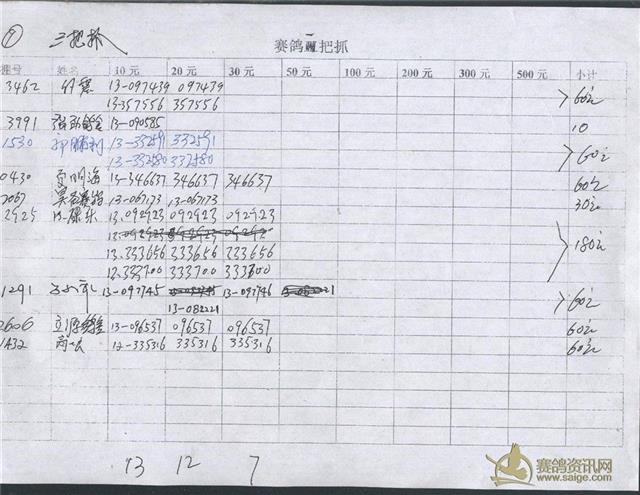 ① 三把抓
赛鸽 把抓
棚号 姓名 10元 20元 30元 50元 100元 200元 300元 500元 小计
3462 13-097439 097439
13-357556 357556 60元
3991 13-090585 10
1530 13-332591 332591
13-332580 332580 60元
0430 13-346637 346637 346637 60元
7067 13-067173 13-067173 30元
2925 13-092923 092923 092923
13-333656 333656 333656 180元
12-333700 333700 333700
1291 13-097745 13-097746
13-082221 60元
2606 13-096537 096537 096537 60元
1432 12-335316 335316 335316 60元
13 12 7
赛鸽资讯网
www.saige.com